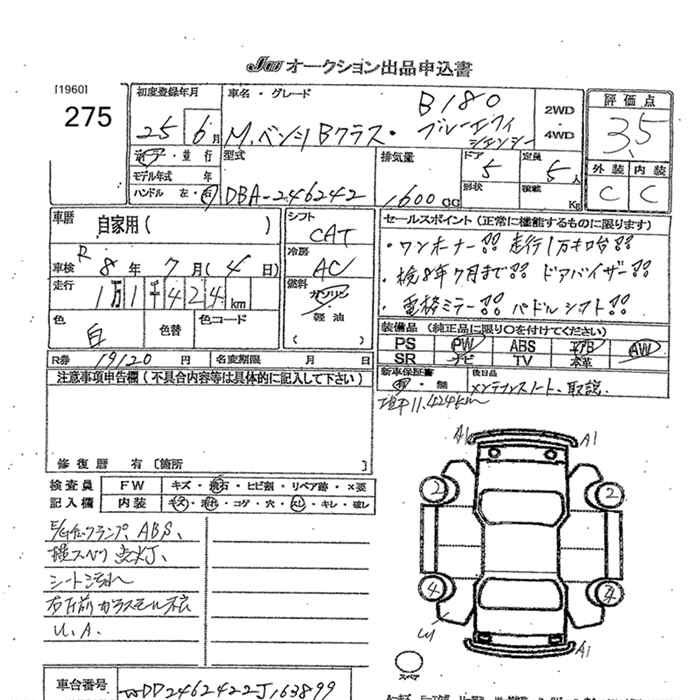 JU オークション出品申込書
[1960]
275
初度登録年月
25 6 月
車名・グレード
B180
M.ベンツ Bクラス・ブルーエフィシェンシー
2WD
・
4WD
評価点
3.5
外装 内装
C C
・並行
モデル年式 年
ハンドル 左・右
型式
DBA-246242
排気量
1600 cc
ドア
5
形状
定員
5 人
積載
Kg
車歴
自家用( )
車検 R 8 年 7 月 (4 日)
走行
1万1千424 km
色
白
色替
色コード
シフト
CAT
冷房
AC
燃料
ガソリン
軽油
( )
セールスポイント (正常に機能するものに限ります)
・ワンオーナー!! 走行1万キロ台!!
・検8年7月まで!! ドアバイザー!!
・電格ミラー!! パドルシフト!!
装備品 (純正品に限り○を付けてください)
PS PW ABS エアB AW
SR ナビ TV 本革
新車保証書
有・無
後日品
メンテナンスノート、取説
R券 19120 円
名変期限 月 日
注意事項申告欄 (不具合内容等は具体的に記入して下さい)
修復歴 有〔箇所 〕
検査員 FW キズ・飛石・ヒビ割・リペア跡・×要
記入欄 内装 キズ・汚れ・コゲ・穴・スレ・キレ・破レ
ABS、
横スベリ 点灯、
シート汚れ
右前ガラスモール
U.A.
11,424km
A1 A1
2 2
4 4
A1
スペア
車台番号
WDD2462422J163899